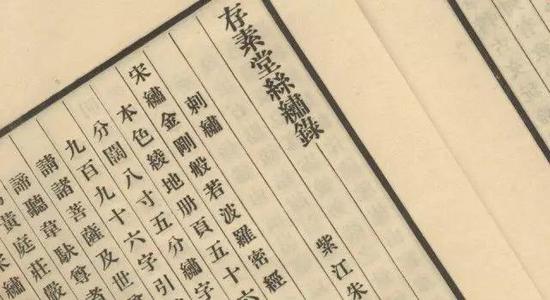 存素堂絲繡錄
紫江朱
刺繡
宋繡金剛般若波羅密經
本色綾地册頁五十六
分闊八寸五分繡字
九百九十六字引
請諸菩薩及世
諦聽韋馱尊者
黃庭莊嚴